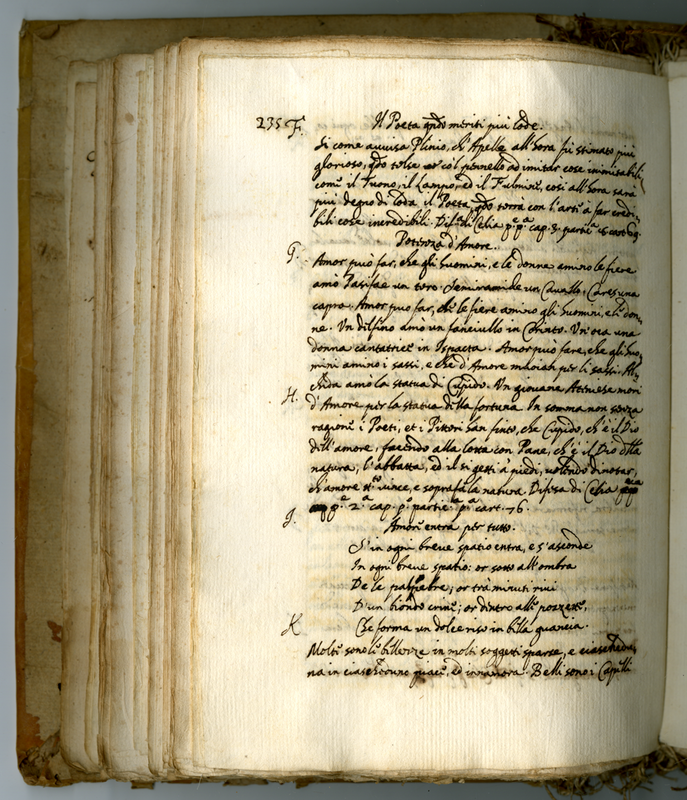 235 F. Il Poeta qñdo meriti più lode.
Si come avvisa Plinio, ch'Apelle all'hora fù stimato più
glorioso, qñdo tolse col pennello ad imitar cose inimitabili
come il Tuono, il Lampo, ed il Fulmine, così all'hora sarà
più degno di loda il Poeta, qñdo torrà con l'arte à far credi-
bili cose incredibili. Difesa di Celia p.e p.a cap. 3. partic.a
Potenza d'Amore.
G. Amor può far, che gli huomini, e le donne amino le fiere
amò Pasifae un toro. Semiramide un Cavallo. una
capra. Amor può far, che le fiere amino gli huomini, e le don-
ne. Un delfino amò un fanciullo in . Un' oca una
donna cantatrice in . Amor può fare, che gli huo-
mini amino i sassi, e che d'Amore muoiah per li sassi. Al-
chida amò la statua di Cupido. Un giovane Atteniese morì
H. d'Amore per la statua della fortuna. In somma non senza
ragione i Poeti, et i Pittori han finto, che Cupido, ch'è il Dio
dell'amore, facendo alla lotta con Pane, ch'è il Dio della
natura, l'abbatta, ed il si getti à piedi, volendo dinotar,
ch'amore vince, e soprafà la natura. Difesa di Celia
p.e 2.a cap. p.o partic.la p.a cart. 76.
J. Amore entra per tutto.
S'in ogni breve spatio entra, e s'asconde
In ogni breve spatio: or sotto all'ombra
De le palpebre; or trà minuti rivi
D'un biondo crine; or dentro alle pozzette,
K Che forma un dolce riso in bella guancia.
Molte sono le bellezze in molti soggetti sparse, e ciaschedu-
na in ciascheduno piace, ed innamora. Belli sono i Capelli